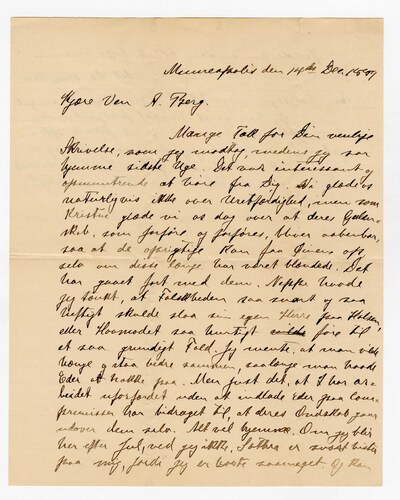 Minneapolis den 14de Dec. 1899
Kjære Ven A. Berg.
Mange Takk for Din venlige
Skrivelse, som jeg modtog, medens jeg var
hjemme sidste Uge. Det var interessant og
opmuntrende at høre fra Dig. Vi glæde os
naturligvis ikke over Uretfærdighed, men som
Kristne glæde vi os dog over at deres Gudenskab,
som forføre og forføres, bliver aabenbar,
saa at de oprigtige kan faa Øinene op,
selv om disse længe har været blændede. Det
har gaaet fort med dem. Neppe havde
jeg tænkt, at Falskheden saa svart og saa
heftigt skulde slaa sin egen Herre paa Halsen
eller Hovmodet saa hurtigt føre til
et saa grundigt Fald. Jeg mente, at man vilde
hænge og staa bedre sammen, saalænge man havde
Eder at hakke paa. Men just det, at I har arbeidet
uforfærdet uden at indlade Eder paa Compromisser
har bidraget til, at deres Ondskab gaar
udover dem selv. Alt vel hjemme. Om jeg blir
her efter Jul, ved jeg ikke,
paa mig, fordi jeg er borte saameget. Og kan